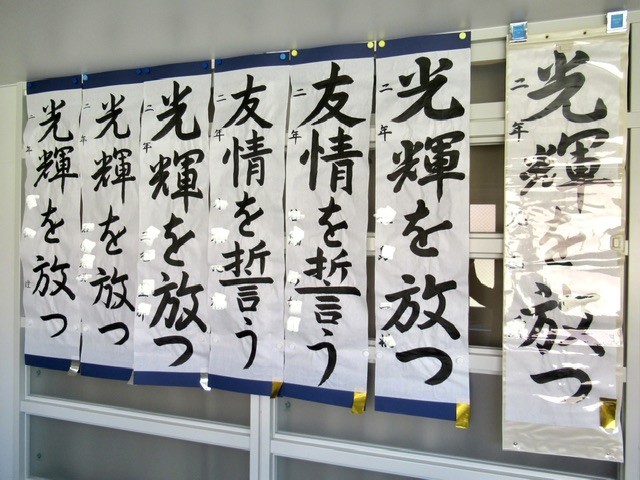 光輝を放つ
二年
光輝を放つ
二年
友情を誓う
二年
友情を誓う
二年
光輝を放つ
二年
光輝を放つ
二年
光輝を放つ
二年